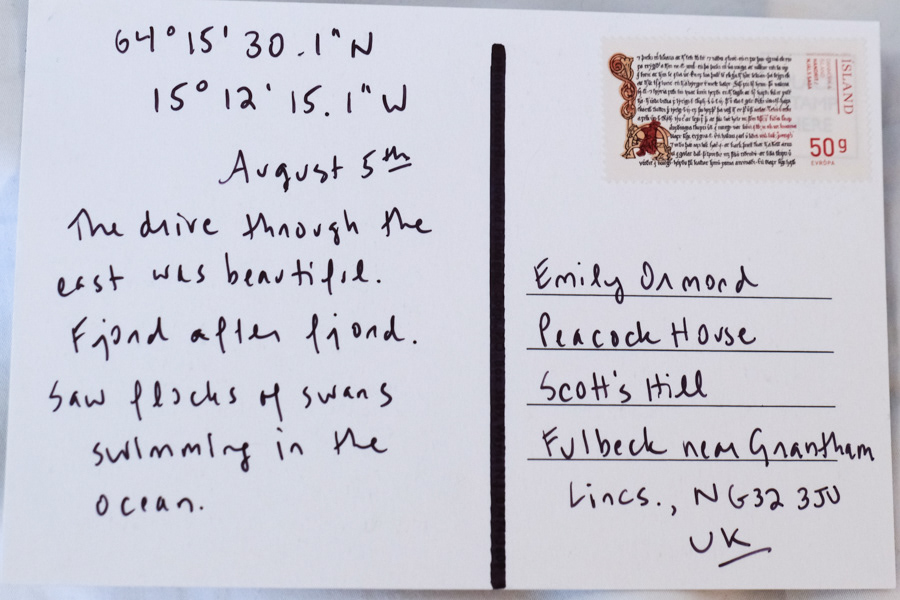 64° 15' 30.1" N
15° 12' 15.1" W
August 5th
The drive through the
east was beautiful.
Fjord after fjord.
Saw flocks of swans
swimming in the
ocean.
ÍSLAND
50g
EVRÓPA
Emily Ormond
Peacock House
Scott's Hill
Fulbeck near Grantham
Lincs., NG32 3JU
UK